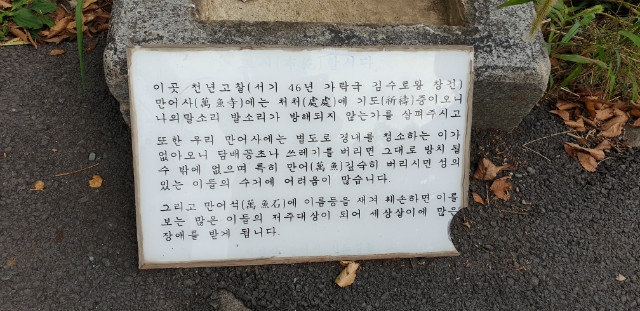 이곳 천년고찰(서기 46년 가락국 김수로왕 창건)
만어사(萬魚寺)에는 처처(處處)에 기도(祈禱)중이오니
나의말소리 발소리가 방해되지 않는가를 살펴주시고
또한 우리 만어사에는 별도로 경내를 청소하는 이가
없아오니 담배꽁초나 쓰레기를 버리면 그대로 방치 될
수 밖에 없으며 특히 만어(萬魚)깊숙히 버리시면 성의
있는 이들의 수거에 어려움이 많습니다.
그리고 만어석(萬魚石)에 이름등을 새겨 훼손하면 이를
보는 많은 이들의 저주대상이 되어 세상살이에 많은
장애를 받게 됩니다.